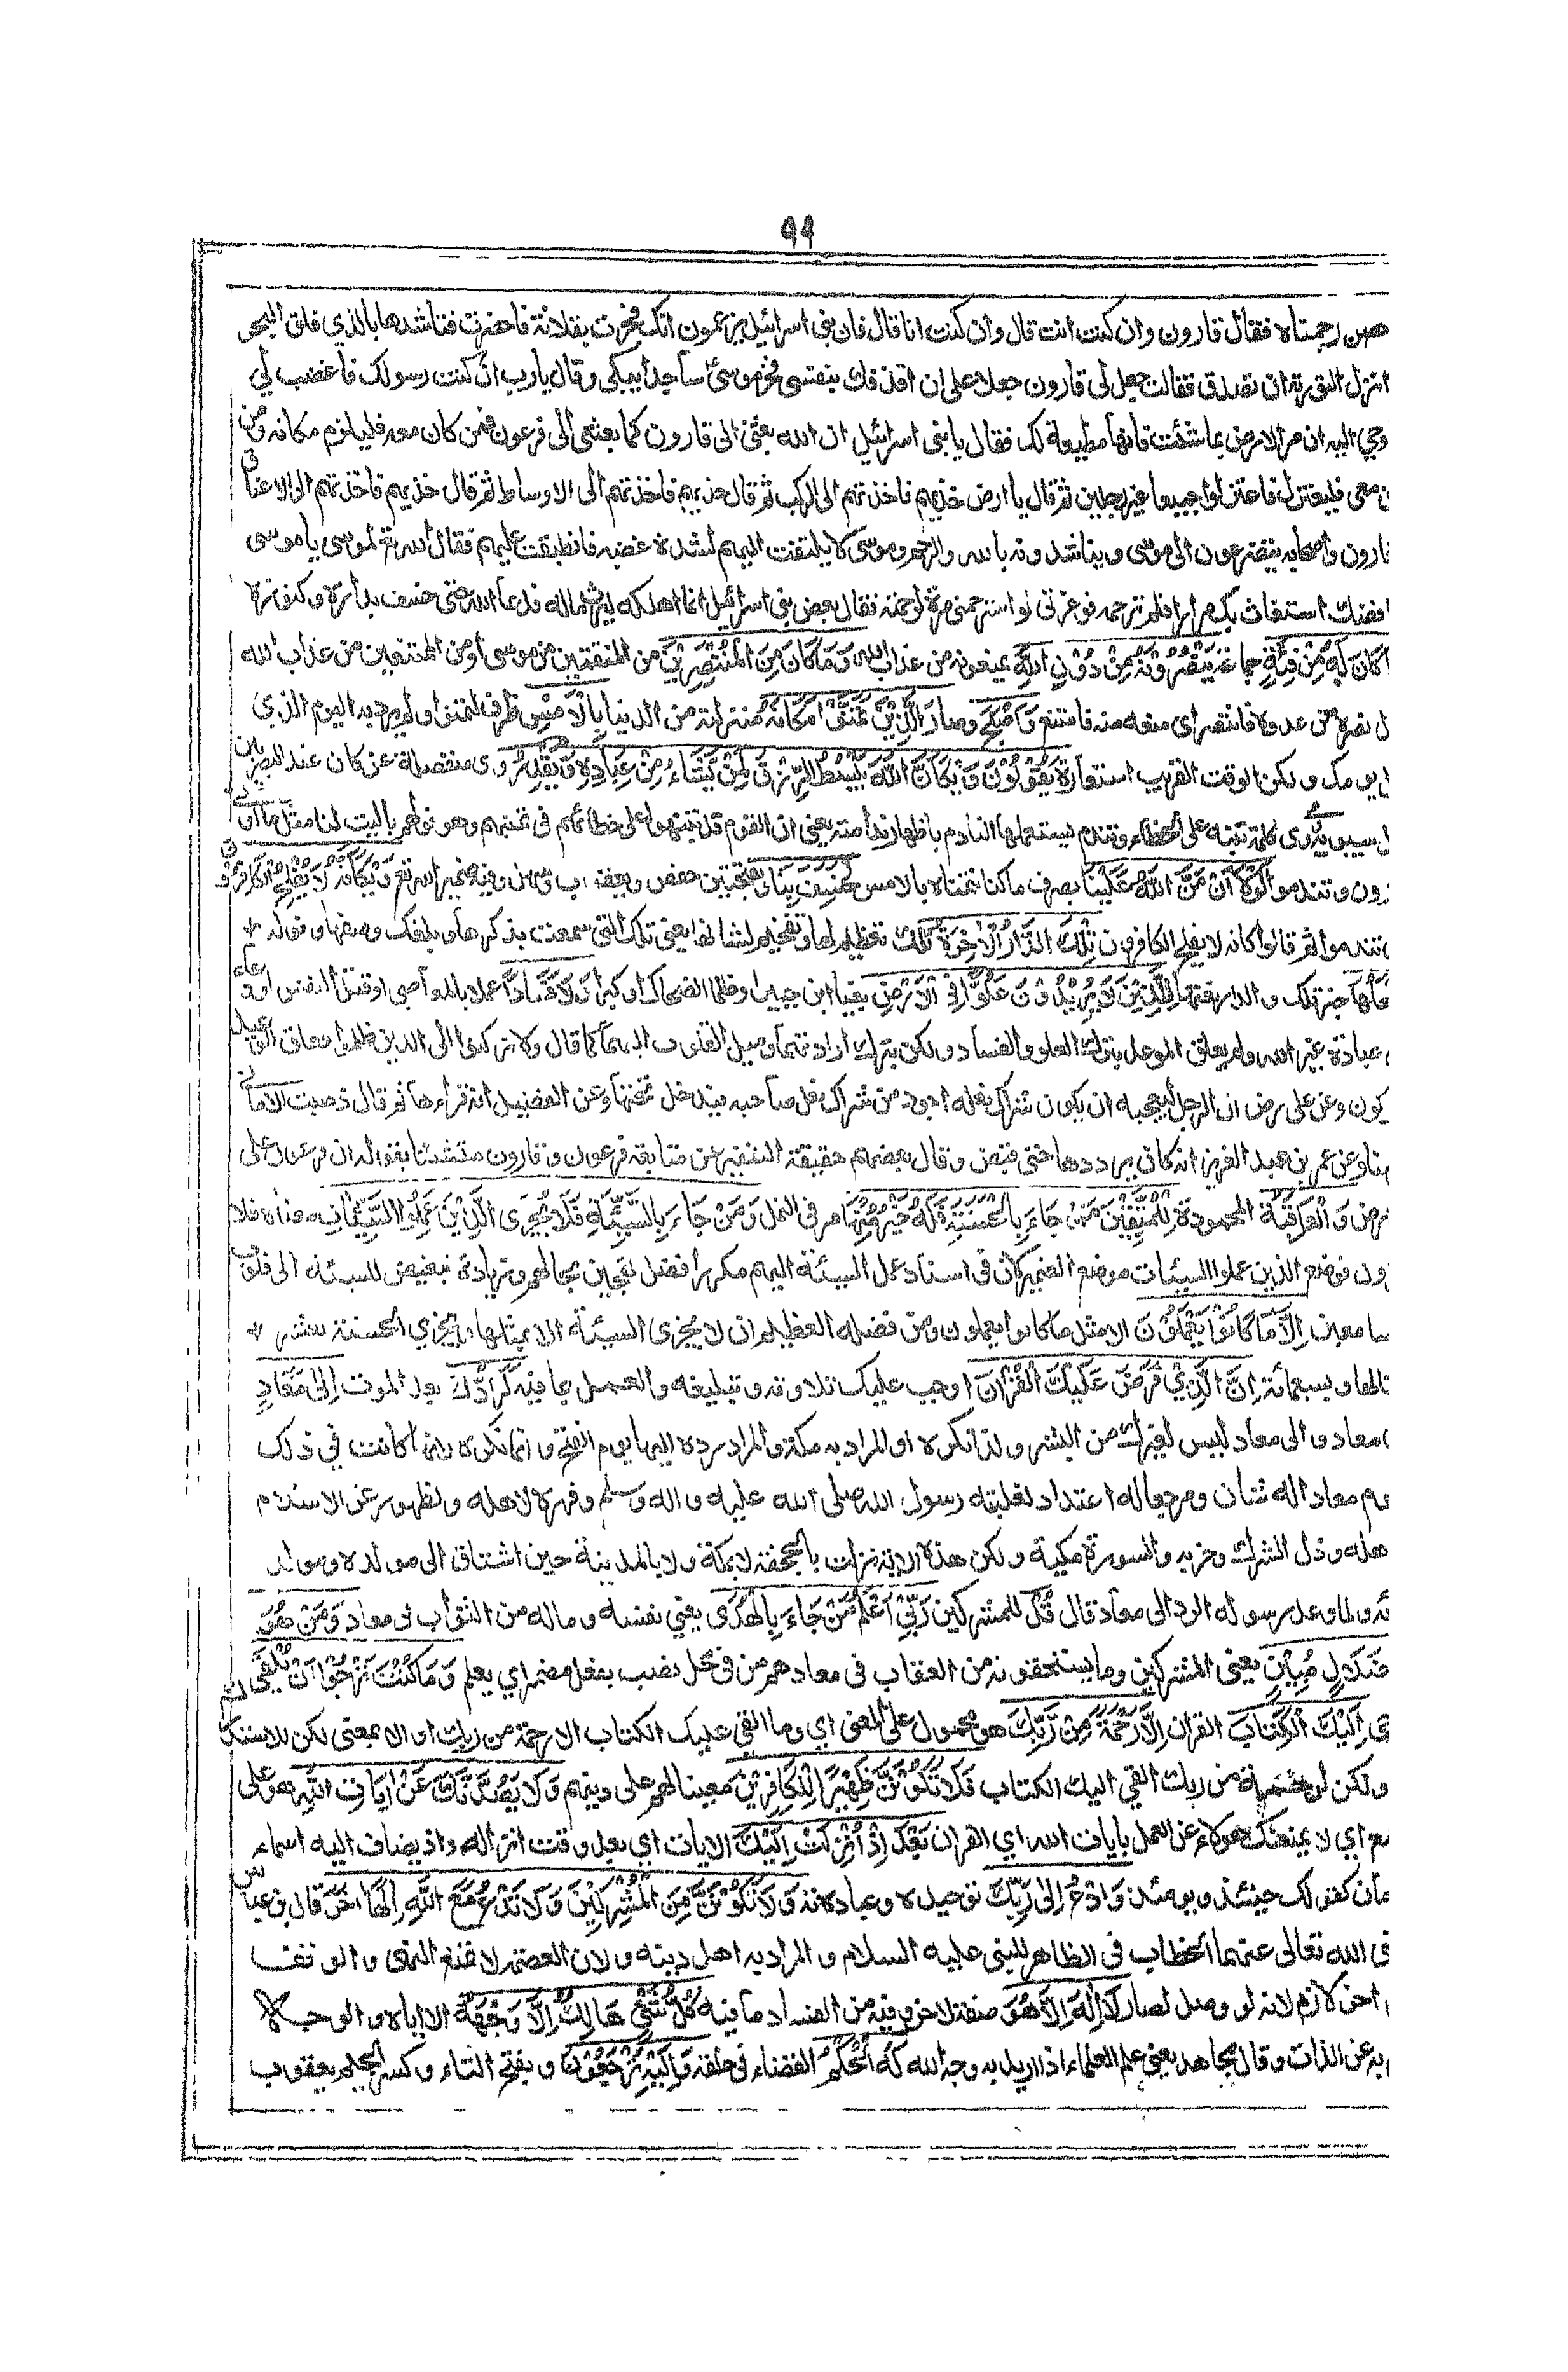 ٩٩
حصن رجمناه فقال قارون وان كنت انت قال وان كنت انا قال فان بنى اسرائيل يزعمون انك فجرت بفلانة فاحضرت فناشدها بالذي فلق البحر
انزل التورية ان تصدق فقالت جعل لى قارون جعلا على ان اقذفك بنفسى فخر موسى ساجدا يبكى وقال يا رب ان كنت رسولك فاغضب لي
وحي اليه ان مر الارض بما شئت فانها مطيعة لك فقال يا بنى اسرائيل ان الله بعثنى الى قارون كما بعثنى الى فرعون فمن كان معه فليلزم مكانه ومن
ن معى فليعتزل فاعتزلوا جميعا غير رجلين ثم قال يا ارض خذيهم فاخذتهم الى الركب ثم قال خذيهم فاخذتهم الى الاوساط ثم قال خذيهم فاخذتهم الى الاعناق
قارون واصحابه يتضرعون الى موسى ويناشدونه بالله والرحم وموسى لا يلتفت اليهم لشدة غضبه فانطبقت عليهم فقال الله تع لموسى يا موسى
افضك استغاث بك مرارا فلم ترحمه فوعزتى لو استرحمنى مرة لرحمته فقال بعض بنى اسرائيل انما اهلكه ليرث ماله فدعا الله حتى خسف بداره وكنوزه
ا كَانَ لَهُ مِنْ فِئَةٍ جماعة يَنْصُرُوْنَهُ مِنْ دُوْنِ اللهِ يمنعونه من عذاب الله وَمَا كَانَ مِنَ الْمُنْتَصِرِيْنَ من المنتقمين من موسى او من الممتنعين من عذاب الله
ل نصره من عدوه فانتصر اى منعه منه فامتنع وَاَصْبَحَ وصار الَّذِيْنَ تَمَنَّوْا مَكَانَهُ منزلته من الدنيا بِالْاَمْسِ ظرف لتمنوا ولم يرد به اليوم الذي
ل يومك ولكن الوقت القريب استعارة يَقُوْلُوْنَ وَيْكَاَنَّ اللهَ يَبْسُطُ الرِّزْقَ لِمَنْ يَّشَاءُ مِنْ عِبَادِهِ وَيَقْدِرُ وى منفصلة عن كان عند البصريين
ل سيبويه وى كلمة تنبه على الخطاء وتندم يستعملها النادم باظهار ندامته يعنى ان القوم قد تنبهوا على خطائهم فى تمنيهم وهو قولهم يا ليت لنا مثل ما اوتى
رون وتندموا لَوْلَا اَنْ مَنَّ اللهُ عَلَيْنَا بصرف ما كنا نتمناه بالامس لَخَسَفَ بِنَا بفتحتين حفص ويعقوب وسهل وفيه ضمير الله تع وَيْكَاَنَّهُ لَا يُفْلِحُ الْكَافِرُوْنَ
تندموا ثم قالوا كانه لا يفلح الكافرون تِلْكَ الدَّارُ الْاٰخِرَةُ تلك تعظيم لها وتفخيم لشانها يعنى تلك التى سمعت بذكرها وبلغك وصفها وقوله
نَجْعَلُهَا خبر تلك والدار نعتها لِلَّذِيْنَ لَا يُرِيْدُوْنَ عُلُوًّا فِى الْاَرْضِ بغيا ابن جبير وظلما الضحاك او كبرا وَلَا فَسَادًا عملا بالمعاصى او قتل النفس او دعاء
عبادة غير الله ولم يعلق الموعد بترك العلو والفساد ولكن بترك ارادتهما وميل القلوب اليهما كما قال ولا تركنوا الى الذين ظلموا فعلق الوعيد
كون وعن على رض ان الرجل ليعجبه ان يكون شراك نعله اجود من شراك نعل صاحبه فيدخل تحتها وعن الفضيل انه قراءها ثم قال ذهبت الامانى
هنا وعن عمر بن عبد العزيز انه كان يرددها حتى قبض وقال بعضهم حقيقة التنفير عن متابعة فرعون وقارون متشبثا بقوله ان فرعون على
رض وَالْعَاقِبَةُ المحمودة لِلْمُتَّقِيْنَ مَنْ جَاءَ بِالْحَسَنَةِ فَلَهُ خَيْرٌ مِّنْهَا مر فى النمل وَمَنْ جَاءَ بِالسَّيِّئَةِ فَلَا يُجْزَى الَّذِيْنَ عَمِلُوا السَّيِّئَاتِ معناه فلا
زون فوضع الذين عملوا السيئات موضع الضمير لان فى اسناد عمل السيئة اليهم مكررا فضل تهجين بحالهم وزيادة تبغيض للسيئة الى قلوب
سامعين اِلَّا مَا كَانُوْا يَعْمَلُوْنَ الا مثل ما كانوا يعملون ومن فضله العظيم ان لا يجزى السيئة الا بمثلها ويجزى الحسنة بعشر
ثالها وبسبعمائة اِنَّ الَّذِيْ فَرَضَ عَلَيْكَ الْقُرْاٰنَ اوجب عليك تلاوته وتبليغه والعمل بما فيه لَرَادُّكَ بعد الموت اِلٰى مَعَادٍ
معاد والى معاد ليس لغيرك من البشر ولذا نكره او المراد به مكة والمراد رده اليها يوم الفتح وانما نكره لانها كانت فى ذلك
وم معادا له شان ومرجعا له اعتداد لغلبة رسول الله صلى الله عليه واله وسلم وقهره لاهله ولظهور عز الاسلام
هله وذل الشرك وحزبه والسورة مكية ولكن هذه الاية نزلت بالجحفة لا بمكة ولا بالمدينة حين اشتاق الى مولده ومولد
ئه ولما وعد رسوله الرد الى معاد قال قُلْ للمشركين رَّبِّيْ اَعْلَمُ مَنْ جَاءَ بِالْهُدٰى يعني نفسه وما له من الثواب فى معاد وَمَنْ هُوَ
ضَلَالٍ مُّبِيْنٍ يعنى المشركين وما يستحقونه من العقاب فى معادهم من فى محل نصب بفعل مضمر اي يعلم وَمَا كُنْتَ تَرْجُوْا اَنْ يُّلْقٰى
اِلَيْكَ الْكِتَابُ القران اِلَّا رَحْمَةً مِّنْ رَّبِّكَ هو محمول على المعنى اي وما القى عليك الكتاب الا رحمة من ربك او الا بمعنى لكن للاستدراك
ولكن لرحمة من ربك القي اليك الكتاب فَلَا تَكُوْنَنَّ ظَهِيْرًا لِّلْكَافِرِيْنَ معينا لهم على دينهم وَلَا يَصُدُّنَّكَ عَنْ اٰيَاتِ اللهِ هو على
مع اي لا يمنعنك هؤلاء عن العمل بايات الله اي القران بَعْدَ اِذْ اُنْزِلَتْ اِلَيْكَ الايات اي بعد وقت انزاله واذ يضاف اليه اسماء
مان كقولك حينئذ ويومئذ وَادْعُ اِلٰى رَبِّكَ توحيده وعبادته وَلَا تَكُوْنَنَّ مِنَ الْمُشْرِكِيْنَ وَلَا تَدْعُ مَعَ اللهِ اِلٰهًا اٰخَرَ قال بن عباس
ى الله تعالى عنهما الخطاب فى الظاهر للنبى عليه السلام والمراد به اهل دينه ولان العصمة لا تمنع النهى والوقف
اخر لازم لانه لو وصل لصار لَا اِلٰهَ اِلَّا هُوَ صفة لاخر وفيه من الفساد ما فيه كُلُّ شَيْءٍ هَالِكٌ اِلَّا وَجْهَهُ الا اياه والوجه
به عن الذات وقال مجاهد يعنى علم العلماء اذا اريد به وجه الله لَهُ الْحُكْمُ القضاء فى خلقه وَاِلَيْهِ تُرْجَعُوْنَ وبفتح التاء وكسر الجيم يعقوب